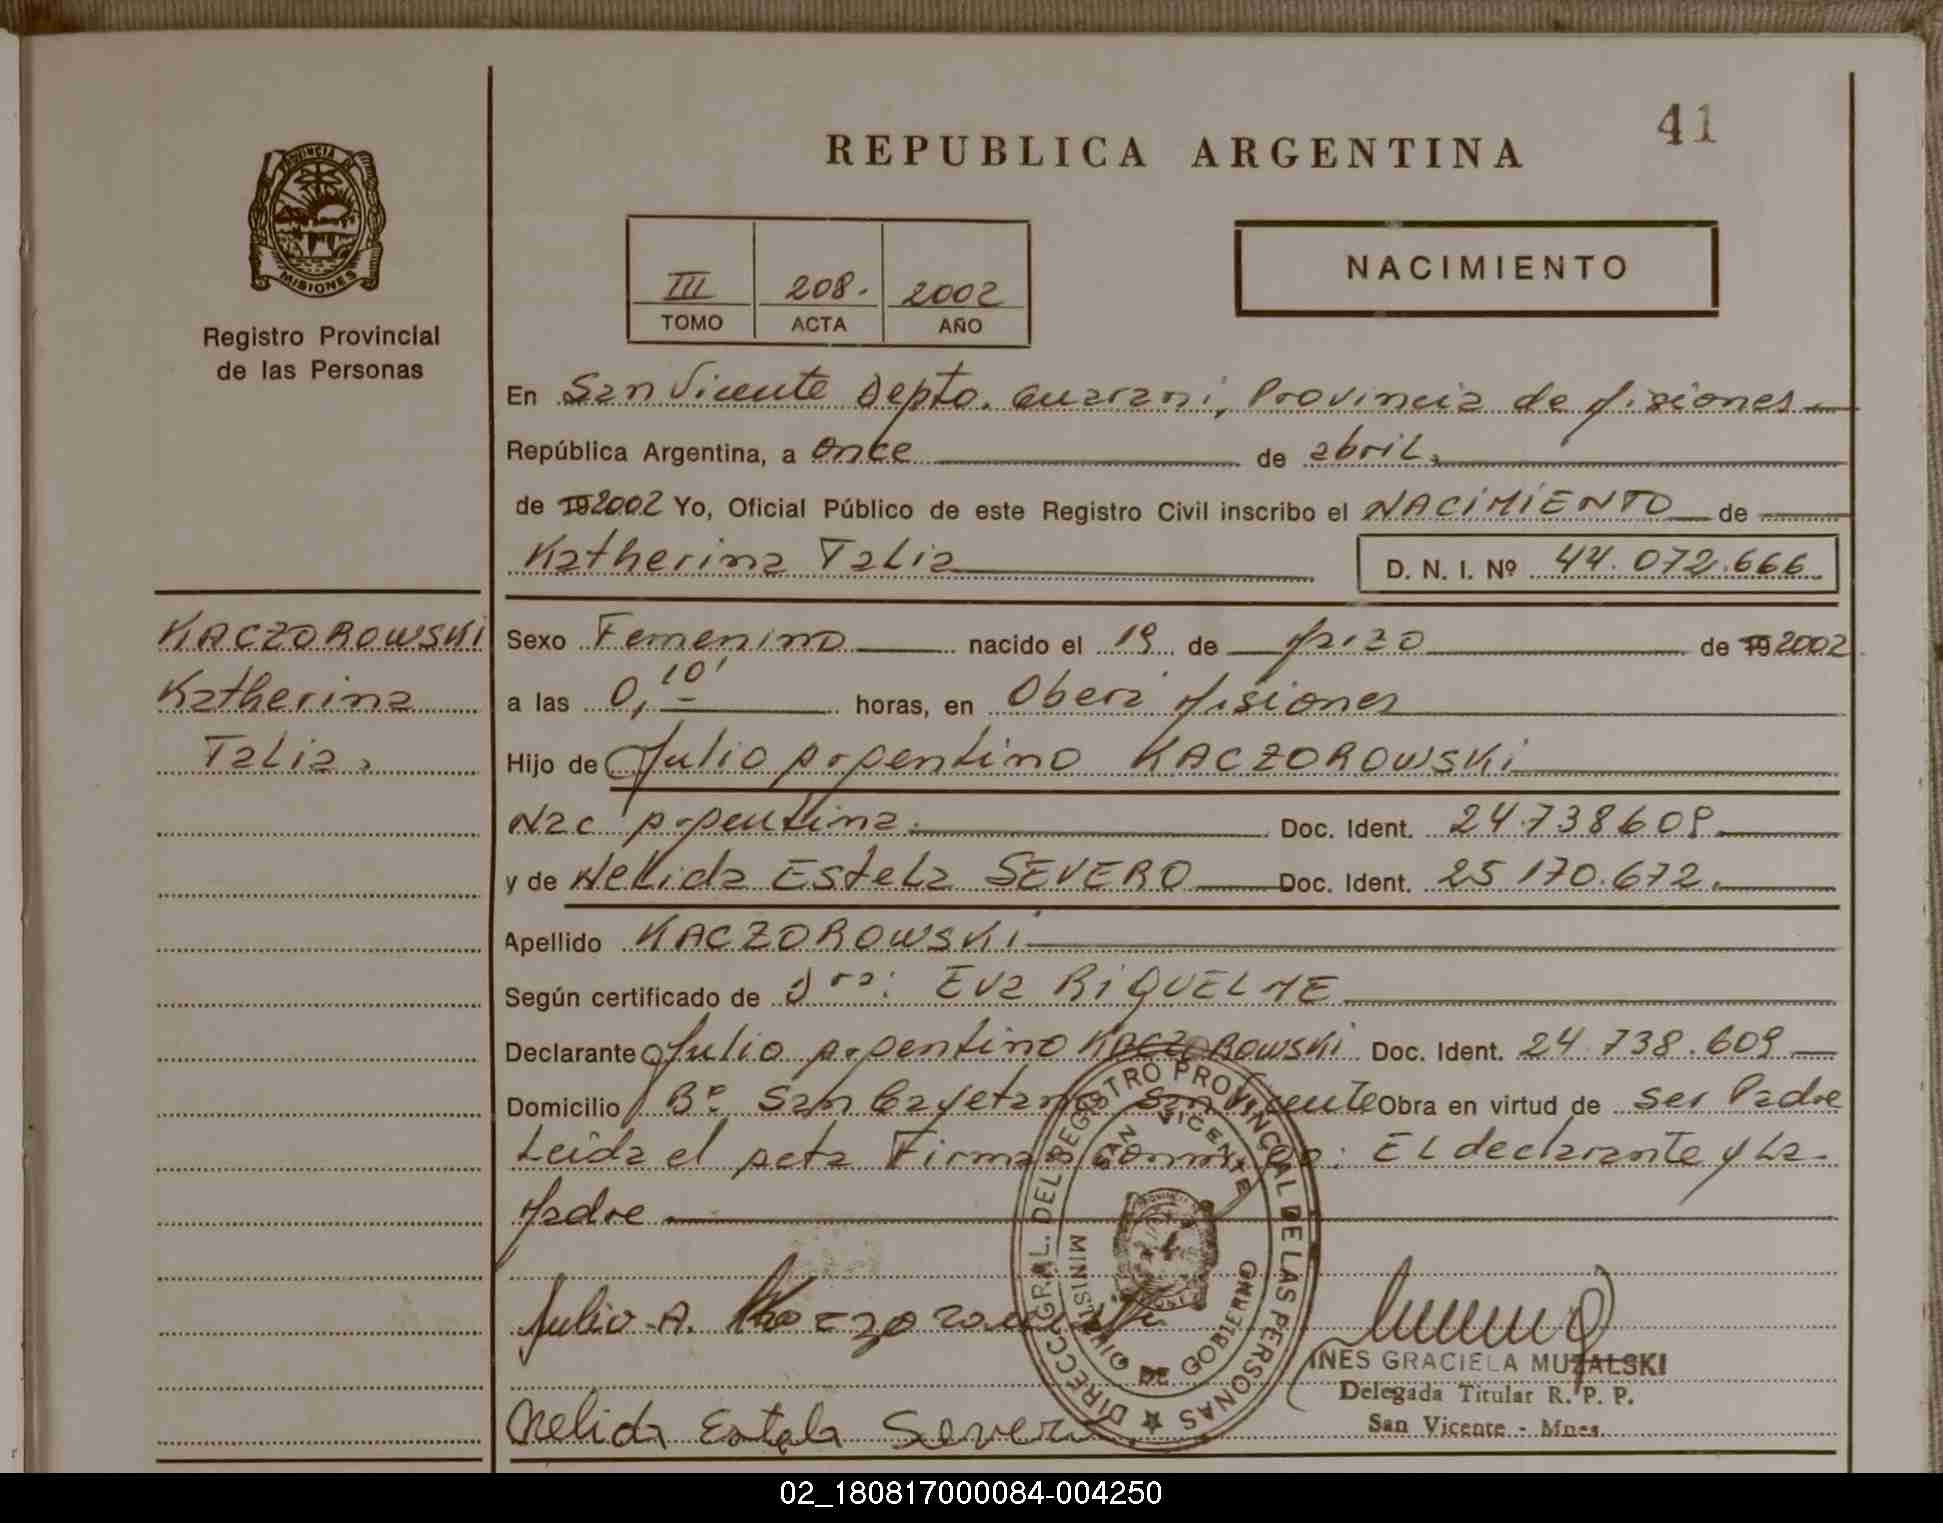 41
REPUBLICA ARGENTINA
PROVINCIA DE
MISIONES
Registro Provincial
de las Personas
III 208. 2002
TOMO ACTA AÑO
NACIMIENTO
En San Vicente Depto. Guarani, Provincia de Misiones
República Argentina, a once de abril,
de 19 2002 Yo, Oficial Público de este Registro Civil inscribo el NACIMIENTO de
Katherina Talia D. N. I. Nº 44.072.666
KACZOROWSKI
Katherina
Talia,
Sexo Femenino nacido el 19 de Marzo de 19 2002
a las 0,10' horas, en Obera Misiones
Hijo de Julio Argentino KACZOROWSKI
Nac Argentina. Doc. Ident. 24.738609
y de Nelida Estela SEVERO Doc. Ident. 25 170.672.
Apellido KACZOROWSKI
Según certificado de Dra: Eva RIQUELME
Declarante Julio Argentino KACZOROWSKI Doc. Ident. 24 738.609
Domicilio Bº San Cayetano San Vicente Obra en virtud de ser Padre
Leida el acta Firman conmigo: El declarante y La
Madre
DIRECC. GRAL. DEL REGISTRO PROVINCIAL DE LAS PERSONAS
SAN VICENTE
MINISTERIO DE GOBIERNO
Julio A. Kaczorowski
INES GRACIELA MUZALSKI
Delegada Titular R. P. P.
San Vicente - Mnes.
Nelida Estela Severo
02_180817000084-004250